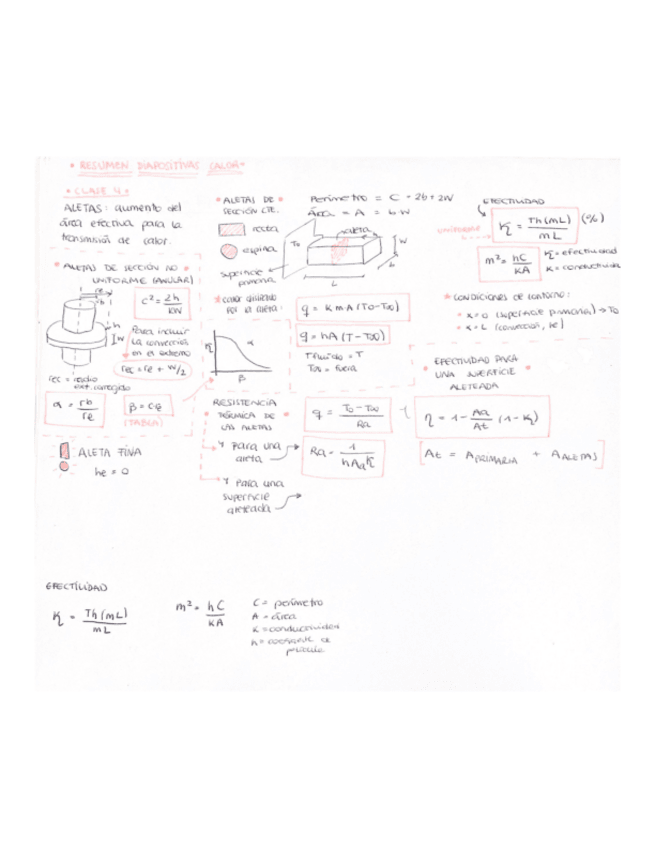 • RESUMEN DIAPOSITIVAS CALOR •
• CLASE 4 •
ALETAS: aumento del
área efectiva para la
transmisión de calor.
• ALETAS DE SECCIÓN NO •
UNIFORME (ANULAR)
re
rb
h
W
C² = 2h / kW
Para incluir
la convección
en el extremo
rec = re + W/2
rec = radio
ext. corregido
α = rb / re
β = c
(TABLA)
ALETA FINA
he = 0
• ALETAS DE •
SECCIÓN CTE.
recta
espina
superficie
primaria
Perímetro = C = 2b + 2W
Área = A = b·W
aleta
To
W
b
L
calor disipado
por la aleta:
q = K m A (To - T∞)
q = hA (T - T∞)
T fluido = T
T∞ = fuera
α
β
RESISTENCIA
TÉRMICA DE
LAS ALETAS
q = To - T∞ / Ra
Para una
aleta
Ra = 1 / hAa
Para una
superficie
aleteada
EFECTIVIDAD
UNIFORME
= Th(mL) / mL (%)
m² = hC / KA
= efectividad
K = conductividad
• CONDICIONES DE CONTORNO:
• x = 0 (superficie primaria) → To
• x = L (convección, he)
• EFECTIVIDAD PARA •
UNA SUPERFICIE
ALETEADA
η = 1 - Aa / At (1 -
At = APRIMARIA + AALETAS
EFECTIVIDAD
= Th(mL) / mL
m² = hC / KA
C = perímetro
A = área
K = conductividad
h = coeficiente de